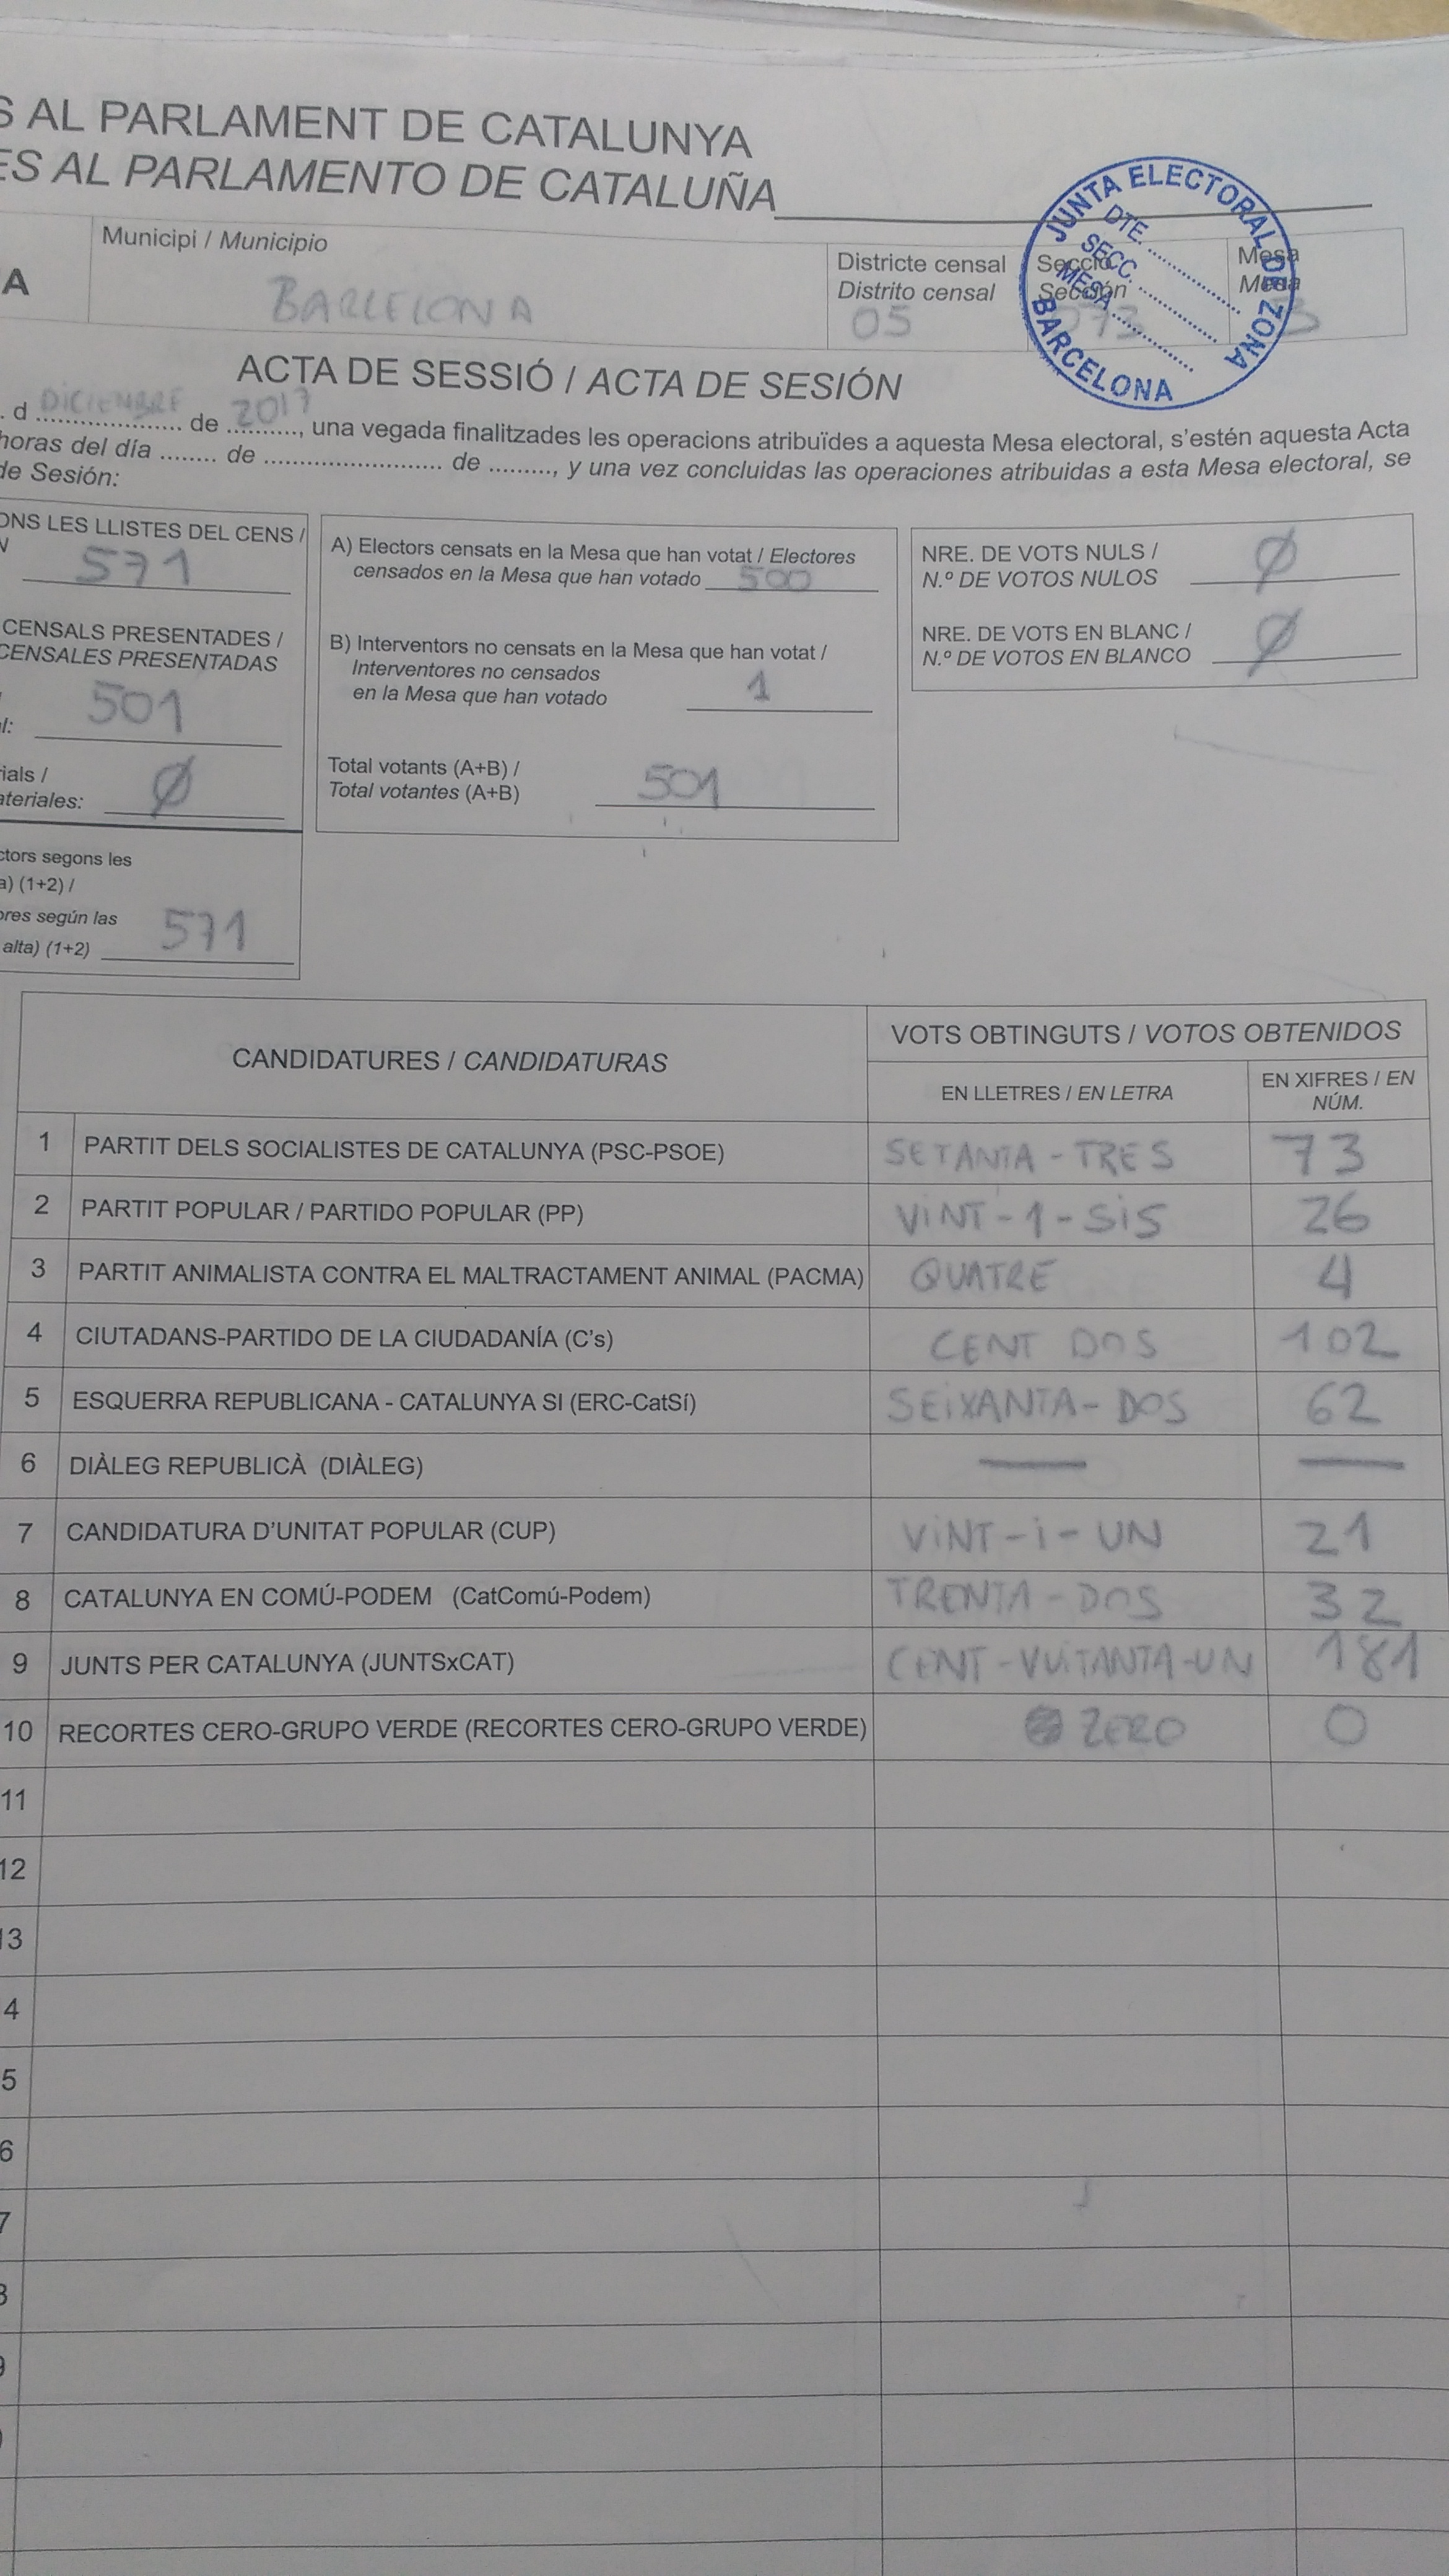 S AL PARLAMENT DE CATALUNYA
ES AL PARLAMENTO DE CATALUÑA
JUNTA ELECTORAL DE ZONA
BARCELONA
DTE. ..................
SECC. ..................
MESA ..................
A
Municipi / Municipio
BARCELONA
Districte censal
Distrito censal
05
Secció
Sección
073
Mesa
Mesa
B
ACTA DE SESSIÓ / ACTA DE SESIÓN
. d DICIEMBRE de 2017, una vegada finalitzades les operacions atribuïdes a aquesta Mesa electoral, s'estén aquesta Acta
horas del día ........ de .......................... de ........., y una vez concluidas las operaciones atribuidas a esta Mesa electoral, se
de Sesión:
ONS LES LLISTES DEL CENS /
571
CENSALS PRESENTADES /
CENSALES PRESENTADAS
l: 501
ials /
ateriales: Ø
ctors segons les
a) (1+2) /
ores según las
alta) (1+2) 571
A) Electors censats en la Mesa que han votat / Electores
censados en la Mesa que han votado 500
B) Interventors no censats en la Mesa que han votat /
Interventores no censados
en la Mesa que han votado 1
Total votants (A+B) /
Total votantes (A+B) 501
NRE. DE VOTS NULS /
N.º DE VOTOS NULOS Ø
NRE. DE VOTS EN BLANC /
N.º DE VOTOS EN BLANCO Ø
CANDIDATURES / CANDIDATURAS
VOTS OBTINGUTS / VOTOS OBTENIDOS
EN LLETRES / EN LETRA
EN XIFRES / EN
NÚM.
1 PARTIT DELS SOCIALISTES DE CATALUNYA (PSC-PSOE) SETANTA-TRES 73
2 PARTIT POPULAR / PARTIDO POPULAR (PP) ViNT-1-SiS 26
3 PARTIT ANIMALISTA CONTRA EL MALTRACTAMENT ANIMAL (PACMA) QUATRE 4
4 CIUTADANS-PARTIDO DE LA CIUDADANÍA (C's) CENT DOS 102
5 ESQUERRA REPUBLICANA - CATALUNYA SI (ERC-CatSí) SEiXANTA-DOS 62
6 DIÀLEG REPUBLICÀ (DIÀLEG) — —
7 CANDIDATURA D'UNITAT POPULAR (CUP) ViNT-i-UN 21
8 CATALUNYA EN COMÚ-PODEM (CatComú-Podem) TRENTA-DOS 32
9 JUNTS PER CATALUNYA (JUNTSxCAT) CENT-VUITANTA-UN 181
10 RECORTES CERO-GRUPO VERDE (RECORTES CERO-GRUPO VERDE) ZERO 0
11
12
13
4
5
6
7
8
9